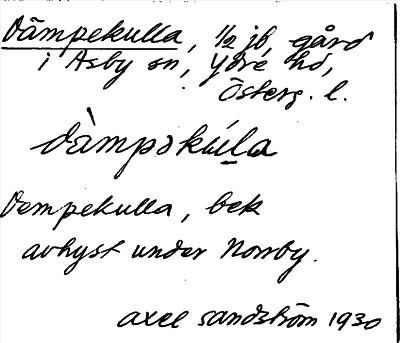 Dämpekulla, 1/2 jb, gård
i Asby sn, Ydre hd,
Österg. l.
dàmpəkúla
Dempekulla, bek
avhyst under Norrby.
Axel Sandström 1930